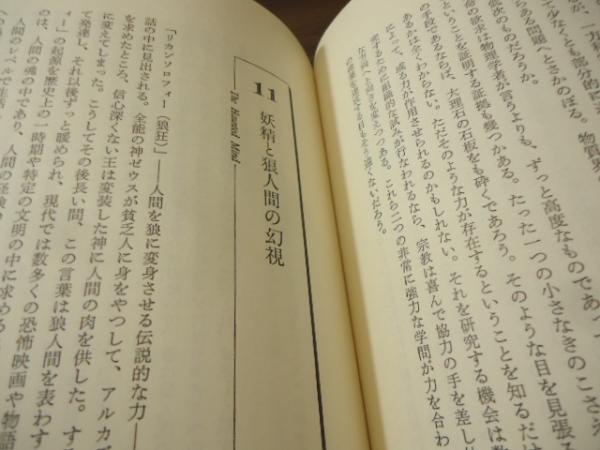 一方程
て少なくとも部分的に
らある問題へとさかのぼる。物質界
低次のものだろうか。
命の欲求は物理学者が言うよりも、ずっと高度なものであ
ということを証明する証拠も幾つかある。たった一つの小さなきのこさえ
の手段であるならば、大理石の石板をも砕くであろう。そのような目を見張る
あるから全くわからない。ただそのような力が存在するということを知るだけ
によって、或る力が作用させられるのかもしれない。それを研究する機会は数
究するために組織的な試みが行なわれるなら、宗教は喜んで協力の手を差し伸
な方向へと向きを変えつつある。これら二つの非常に強力な学問が力を合わ
の成果を達見する日もそう遠くないだろう。
11 妖精と狼人間の幻視
The Haunted Mind
「リカンソロフィー(狼狂)」――人間を狼に変身させる伝説的な力――
話の中に見出される。全能の神ゼウスが貧乏人に身をやつして、アルカデ
を求めたところ、信心深くない王は変装した神に人間の肉を供した。する
に変えてしまった。こうしてその後長い間、この言葉は狼人間を表わす
て発達し、それ以後ずっと暖められ、現代では数多くの恐怖映画や物語
ィー」の起源を歴史上の一時期や特定の文明の中に求める
のは、人間の魂の中であり、人間の経験の
人間のレベルで生活